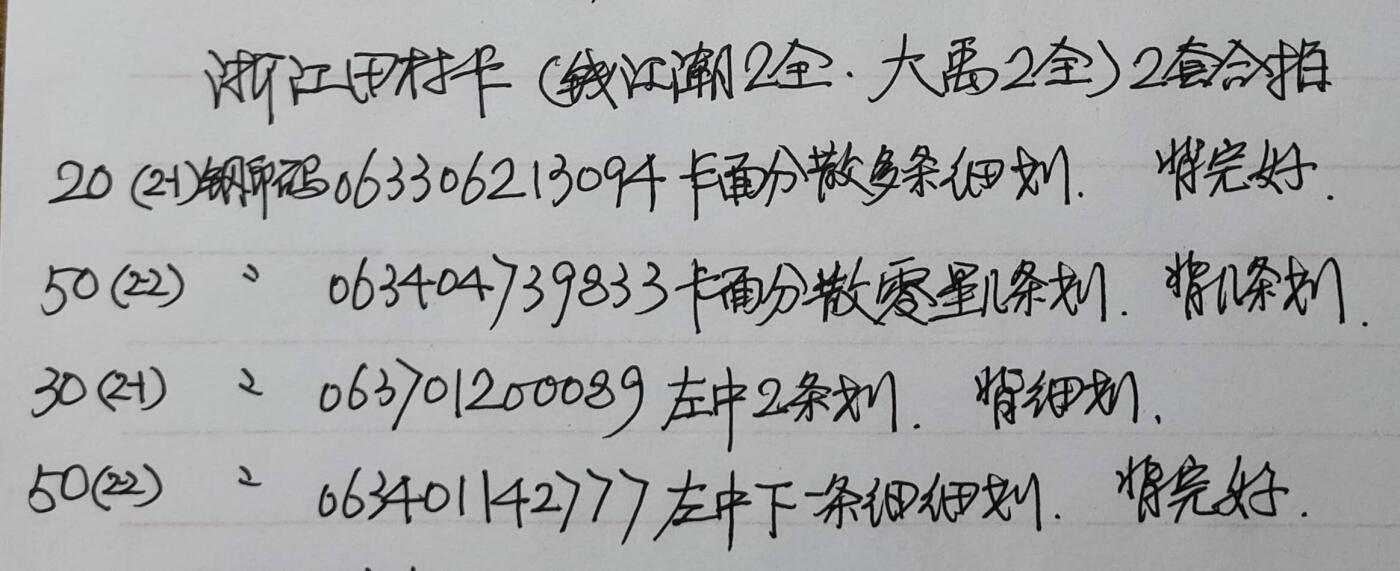 浙江田村卡(钱江潮2全.大禹2全)2套合拍
20(2-1)钢印码063306213094卡面分散多条细划. 背完好.
50(2-2) 〃 063404739833卡面分散零星几条划. 背几条划.
30(2-1) 〃 063701200089左中2条划. 背细划.
50(2-2) 〃 063401142777左中下一条细细划. 背完好.